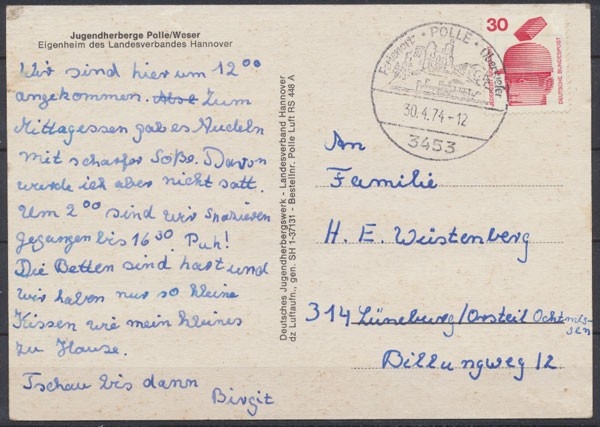 Jugendherberge Polle/Weser
Eigenheim des Landesverbandes Hannover
Wir sind hier um 12⁰⁰
angekommen. Also Zum
Mittagessen gab es Nudeln
mit scharfer Soße. Davon
wurde ich aber nicht satt.
Um 2⁰⁰ sind wir spazieren
gegangen bis 16³⁰ Puh!
Die Betten sind hart und
wir haben nur so kleine
Kissen wie mein kleines
zu Hause.
Tschau bis dann
Birgit
Deutsches Jugendherbergswerk - Landesverband Hannover
dz Luftaufn., gen. SH 1-37131 - Bestellnr. Polle Luft RS 448 A
POLLE
Oberweser
30.4.74-12
3453
30
DEUTSCHE BUNDESPOST
An
Familie
H. E. Wüstenberg
314 Lüneburg/Orsteil Ochtmis-
sen
Billungweg 12